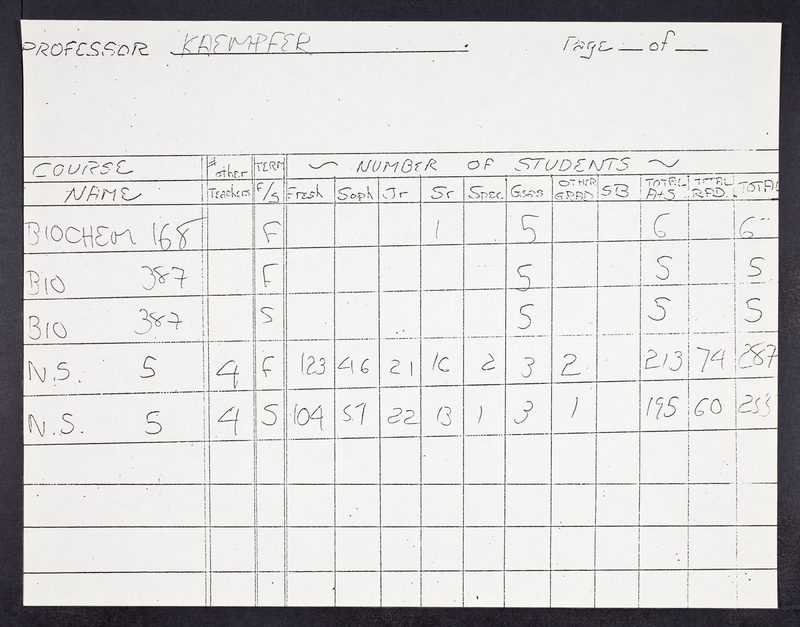 PROFESSOR KAEMPFER. Page __ of __
COURSE # other TERM ~ NUMBER OF STUDENTS ~
NAME Teachers F/S Fresh Soph Jr Sr Spec Gsas OTHER GRAD TOTAL A+S TOTAL RAD. TOTAL
BIOCHEM 168 F 1 5 6 6
BIO 387 F 5 5 5
BIO 387 S 5 5 5
N.S. 5 4 F 123 46 21 16 2 3 2 213 74 287
N.S. 5 4 S 104 51 22 13 1 3 1 195 60 255